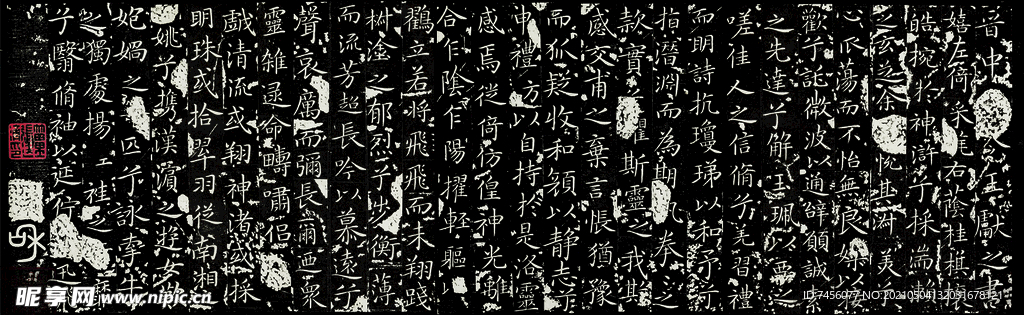 晉中令王獻之書
嬉左倚采旄右蔭桂旗攘
皓捥於神滸兮採湍瀨
之玄芝余悅其淑美
心振蕩而不怡無良媒以接
歡兮託微波以通辭願誠素
之先達兮解玉珮以要之
嗟佳人之信脩兮羌習禮
而明詩抗瓊珶以和予兮
指潛淵而為期執拳之
款實懼斯靈之我欺
感交甫之棄言悵猶豫
而狐疑收和顏以靜志兮
申禮防以自持於是洛靈
感焉徙倚仿偟神光離
合乍陰乍陽擢輕軀以
鸖立若將飛飛而未翔踐
椒塗之郁烈兮步衡薄
而流芳超長吟以慕遠兮
聲哀厲而彌長爾乃衆
靈雜遝命疇嘯侶
戲清流或翔神渚或採
明珠或拾翠羽從南湘
姚兮攜漢濱之游女
媧之匹兮詠牽牛
之獨處揚輕袿之
兮翳脩袖以延佇迅
昵享网 www.nipic.cn
ID:7456077 NO:20210504132031678121